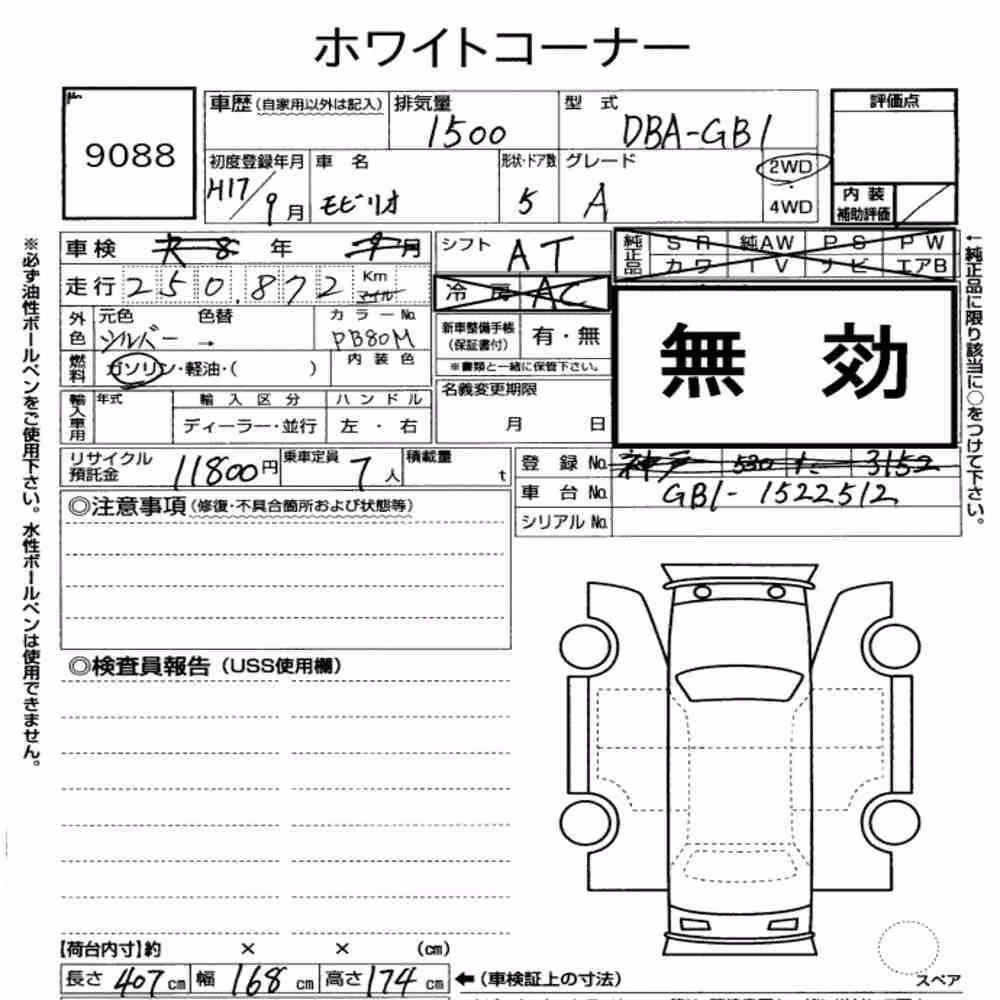 ホワイトコーナー
9088
車歴(自家用以外は記入) 排気量 型 式 評価点
1500 DBA-GB1
初度登録年月 車 名 形状・ドア数 グレード 2WD
H17/9月 モビリオ 5 A ・
4WD
内 装
補助評価
車検 年 月 シフト AT
純正品 SR 純AW PS PW
カワ TV ナビ エアB
走行 250,872 Km マイル
冷 房 AC
外色 元色 色替 カラーNo.
シルバー → PB80M
新車整備手帳
(保証書付) 有・無
※書類と一緒に保管下さい。
無 効
燃料 ガソリン・軽油・( ) 内 装 色
輸入車用 年式 輸 入 区 分 ハ ン ド ル
ディーラー・並行 左 ・ 右
名義変更期限
月 日
リサイクル
預託金 11800円 乗車定員 7人 積載量 t
登 録 No. 神戸 530 た 3152
車 台 No. GB1-1522512
シリアル No.
◎注意事項(修復・不具合箇所および状態等)
◎検査員報告(USS使用欄)
【荷台内寸】約 × × (cm)
長さ 407 cm 幅 168 cm 高さ 174 cm ←(車検証上の寸法)
スペア
※必ず油性ボールペンをご使用下さい。水性ボールペンは使用できません。
←純正品に限り該当に○をつけて下さい。